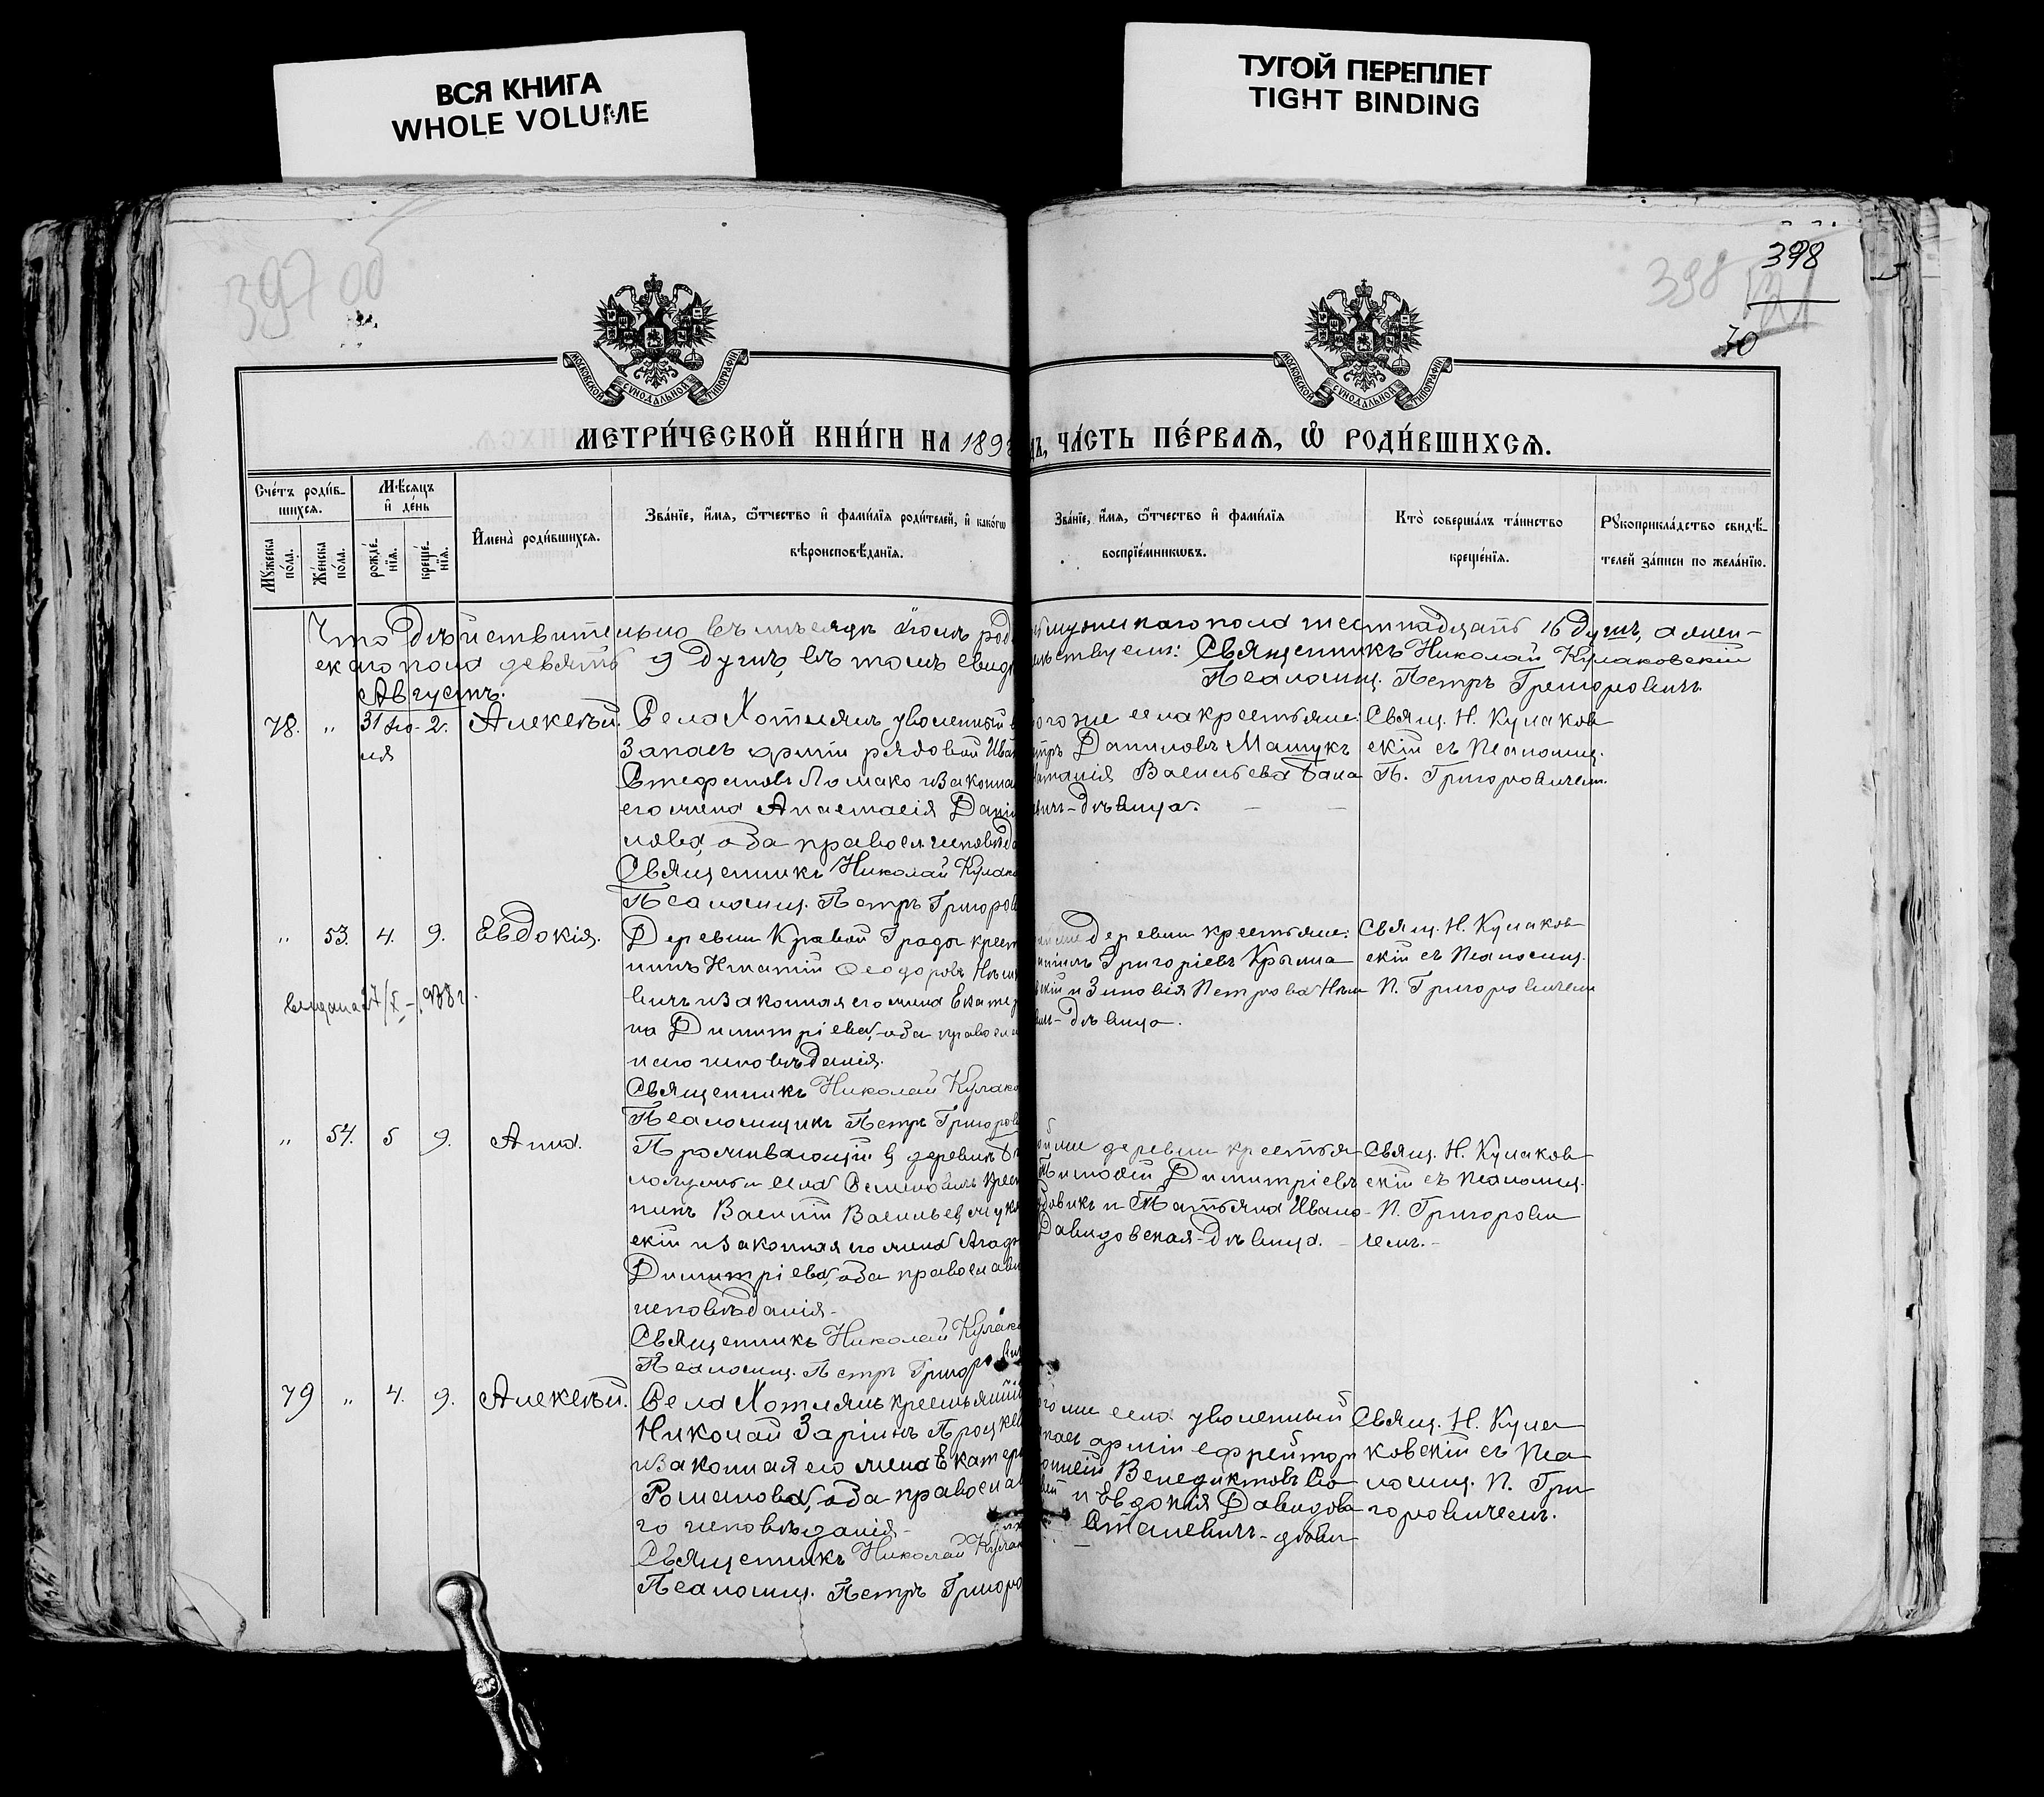 ВСЯ КНИГА
WHOLE VOLUME
ТУГОЙ ПЕРЕПЛЕТ
TIGHT BINDING
397 об
398
398
70
МОСКОВСКОЙ СУНОДАЛЬНОЙ ТИПОГРАФІИ
МОСКОВСКОЙ СУНОДАЛЬНОЙ ТИПОГРАФІИ
МЕТРИ́ЧЕСКОЙ КНИ́ГИ НА 189
ЧА́СТЬ ПЕ́РВАЯ, Ѽ РОДИ́ВШИХСЯ.
Сче́тъ роди́в-
шихся.
Му́жеска по́ла.
Же́нска по́ла.
Мѣ́сяцъ
и҆ де́нь
рожде́-
нїя.
креще́-
нїя.
И҆мена̀ роди́вшихся.
Зва́нїе, и҆́мя, ѻ҆́тчество и҆ фами́лїя роди́телей, и҆ како́гѡ
вѣроисповѣ́данїя.
Зва́нїе, и҆́мя, ѻ҆́тчество и҆ фами́лїя
воспрїе́мникѡвъ.
Кто̀ соверша́лъ та́инство
креще́нїя.
Рꙋкоприкла́дство свидѣ́-
телей за́писи по жела́нїю.
Что дѣйствительно въ мѣсяцѣ Іюлѣ род
мужескаго пола шестнадцать 16 душъ, а жен-
скаго пола девять 9 душъ, въ томъ свидѣ
тельствуемъ: Священникъ Николай Кулаковскій
Псаломщ. Петръ Григоровичъ
Августъ.
78. " 31 Ію- 2. Алексѣй.
ля
Села Хотлянъ уволенный въ
запасъ арміи рядовой Ива
Стефановъ Ломако и законная
его жена Анастасія Дани
лова, оба правосл. исповѣда
Священникъ Николай Кулако
Псаломщ. Петръ Григоров
того же села крестьяне:
Петръ Даниловъ Машукъ
Васильева
дѣвица.
Свящ. Н. Кулаков
скій съ Псаломщ.
П. Григоровичем.
" 53. 4. 9. Евдокія.
Деревни Кривой Грады крест
нинъ Игнатій Ѳеодоровъ
вичъ и законная его жена Екатер
на Димитріева, оба правосл
наго исповѣданія.
Священникъ Николай Кулако
Псаломщикъ Петръ Григоров
деревни крестьяне:
Григоріевъ
и Зиновія Петрова
дѣвица.
Свящ. Н. Кулаков
скій съ Псаломщ.
П. Григоровичем
" 54. 5 9. Анна.
Проживающій въ деревнѣ
села крест
нинъ Василій Васильевъ
скій и законная его жена Агаф
Димитріева, оба православ
исповѣданія.
Священникъ Николай Кулако
Псаломщ. Петръ Григорович
же деревни крестья
Тимоѳей Димитріевъ
и Татьяна Ивано
Давидовская-дѣвица.
Свящ. Н. Кулаков
скій съ Псаломщ.
П. Григорови
чемъ.
79 " 4. 9. Алексѣй.
Села Хотлянъ крестьянин
Николай
и законная его жена Екатери
Романова, оба православ
го исповѣданія.
Священникъ Николай Кулак
Псаломщ. Петръ Григоро
того же села уволенный въ
запас арміи ефрейтор
Венедиктовъ
и Евдокія Давидова
Станевичъ-дѣви
Свящ. Н. Кула
ковскій съ Пса
ломщ. П. Гри
горовичемъ.